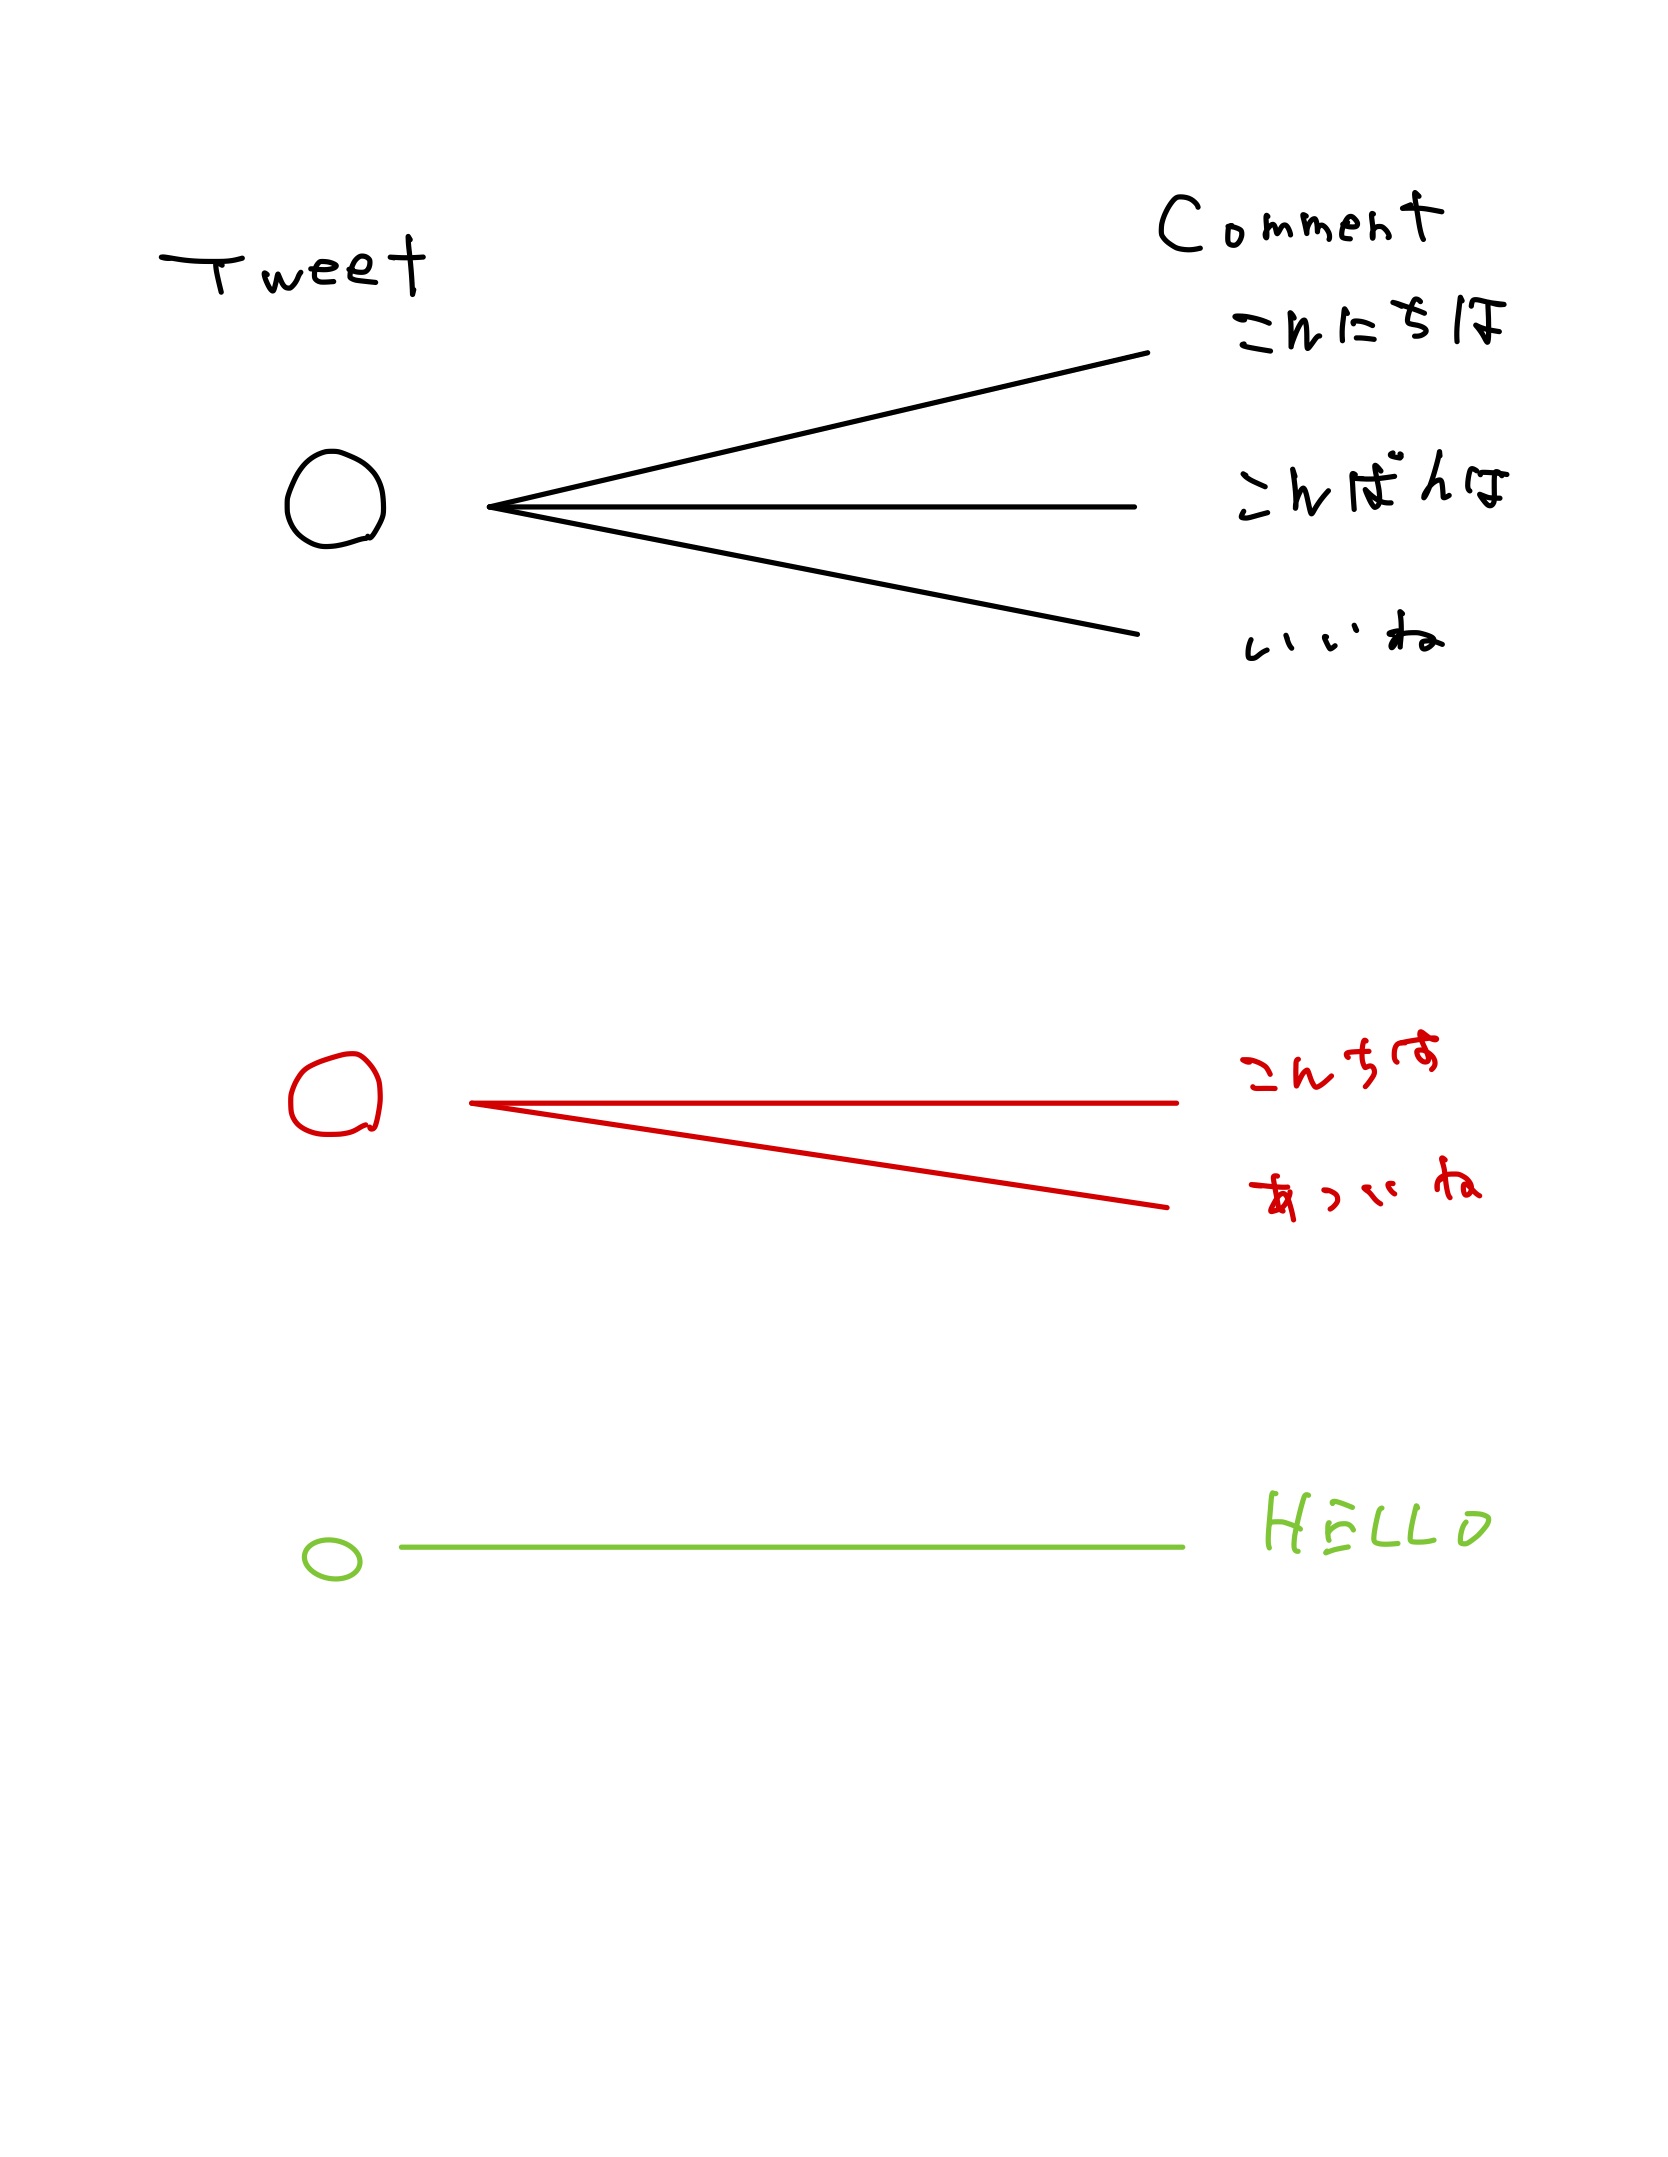 Tweet
Comment
こんにちは
こんばんは
いいね
こんちは
あついね
HELLO